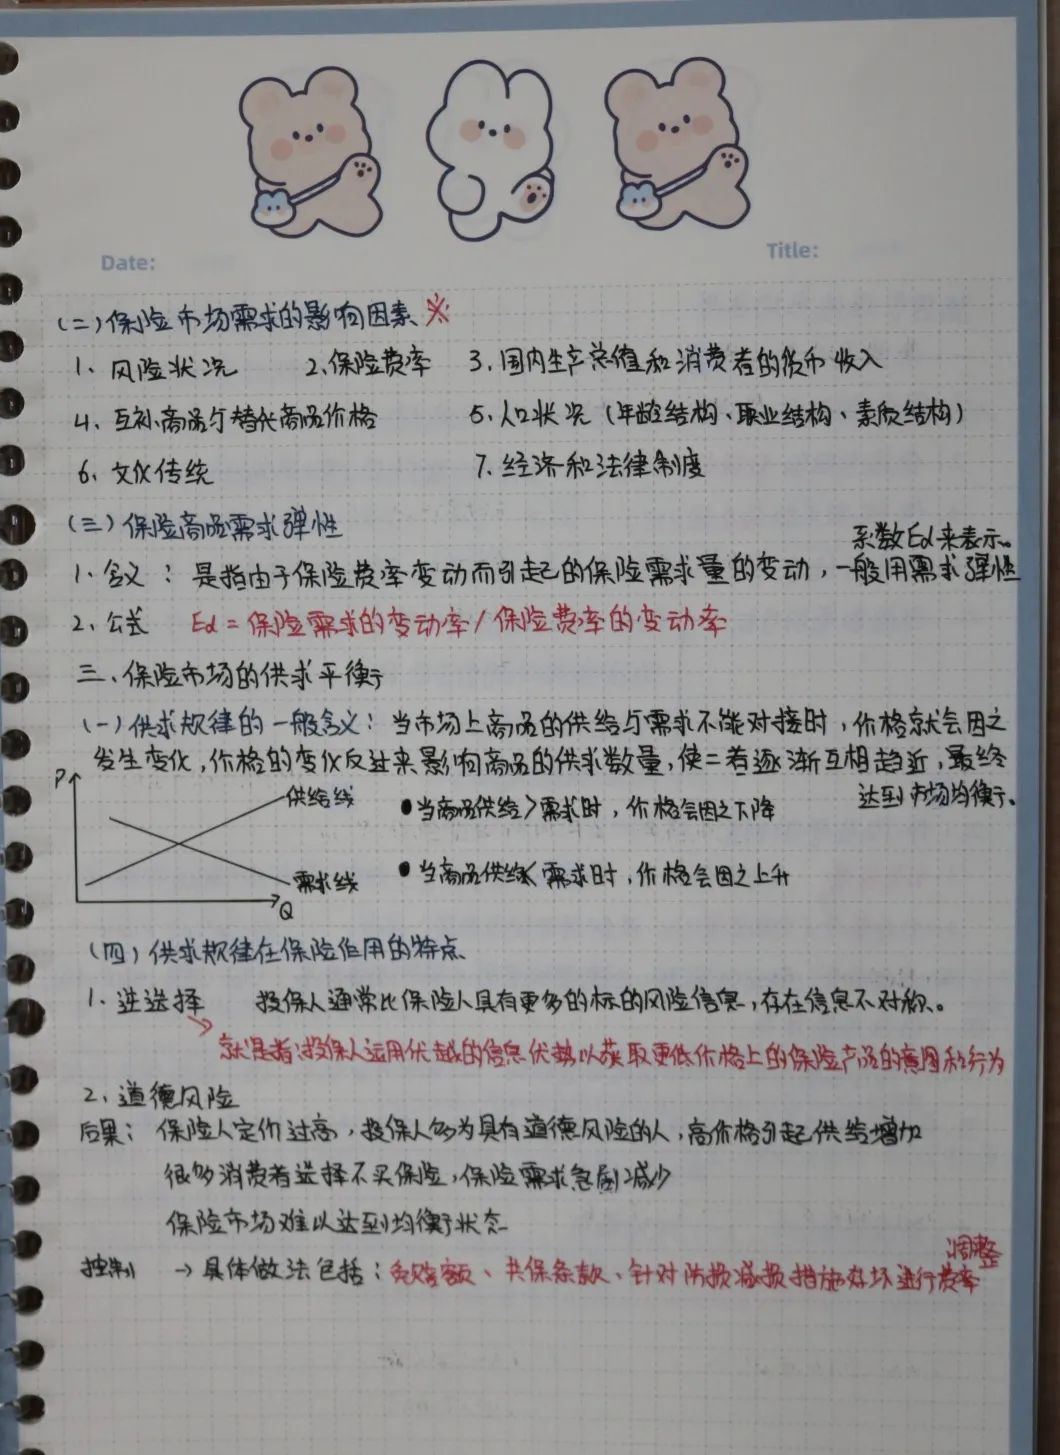 Date:
Title:
(二)保险市场需求的影响因素 ※
1、风险状况 2、保险费率 3、国内生产总值和消费者的货币收入
4、互补商品与替代商品价格 5、人口状况(年龄结构、职业结构、素质结构)
6、文化传统 7、经济和法律制度
(三)保险商品需求弹性
1、含义：是指由于保险费率变动而引起的保险需求量的变动，一般用需求弹性
系数Ed来表示。
2、公式 Ed=保险需求的变动率/保险费率的变动率
三、保险市场的供求平衡
(一)供求规律的一般含义：当市场上商品的供给与需求不能对接时，价格就会因之
发生变化，价格的变化反过来影响商品的供求数量，使二者逐渐互相趋近，最终
达到市场均衡。
P
供给线
•当商品供给>需求时，价格会因之下降
需求线
•当商品供给<需求时，价格会因之上升
Q
(四)供求规律在保险作用的特点
1、逆选择 投保人通常比保险人具有更多的标的风险信息，存在信息不对称。
就是指：投保人运用优越的信息优势以获取更低价格上的保险产品的意图和行为
2、道德风险
后果：保险人定价过高，投保人多为具有道德风险的人，高价格引起供给增加
很多消费者选择不买保险，保险需求急剧减少
保险市场难以达到均衡状态
控制 →具体做法包括：免赔额、共保条款、针对防损减损措施好坏进行费率
调整